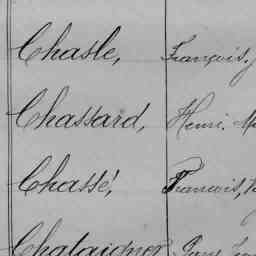 Chasle, François,
Chassard, Henri,
Chassé, Francois,
Chataigner